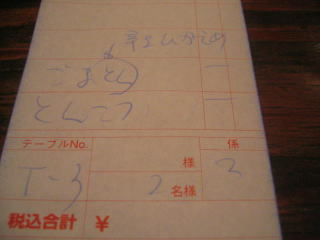 辛さひかえめ
ごまとん 一
とんこつ 一
テーブルNo. 様 係
T-3 2名様 2
税込合計 ¥